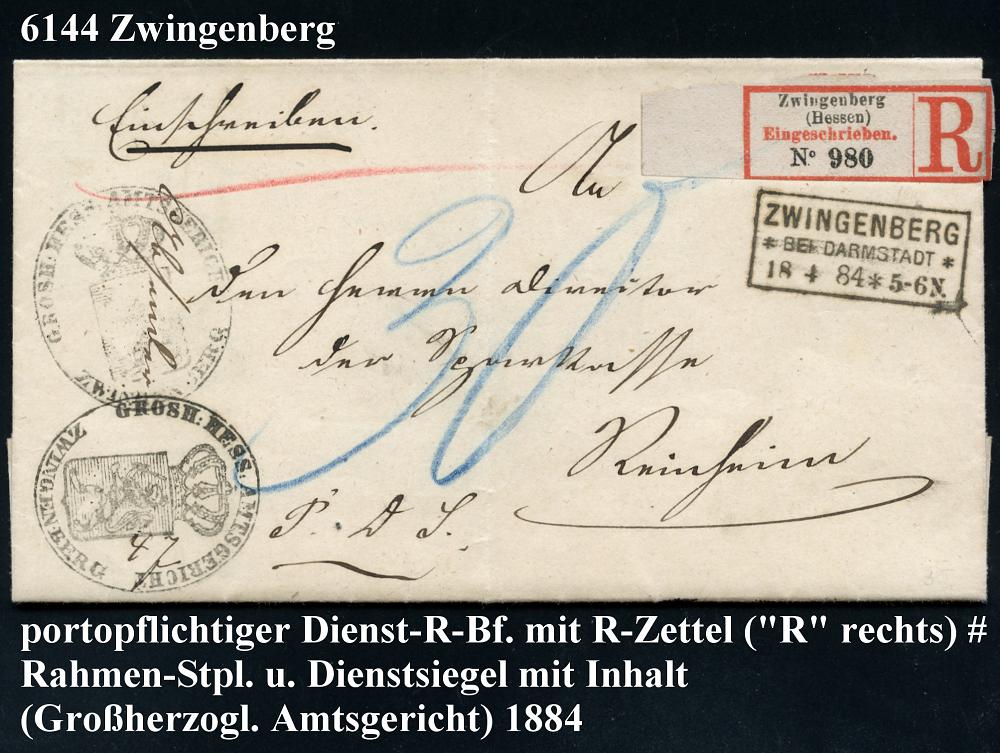 6144 Zwingenberg
Einschreiben.
Zwingenberg
(Hessen)
Eingeschrieben.
Nº 980
R
An
ZWINGENBERG
* BEI DARMSTADT *
18 4 84 * 5-6N.
GROSH: HESS: AMTSGERICHT
den Herren Director
der Sparkasse
30
Reinheim
GROSH: HESS: AMTSGERICHT
ZWINGENBERG
47
P. D. S.
portopflichtiger Dienst-R-Bf. mit R-Zettel ("R" rechts) #
Rahmen-Stpl. u. Dienstsiegel mit Inhalt
(Großherzogl. Amtsgericht) 1884